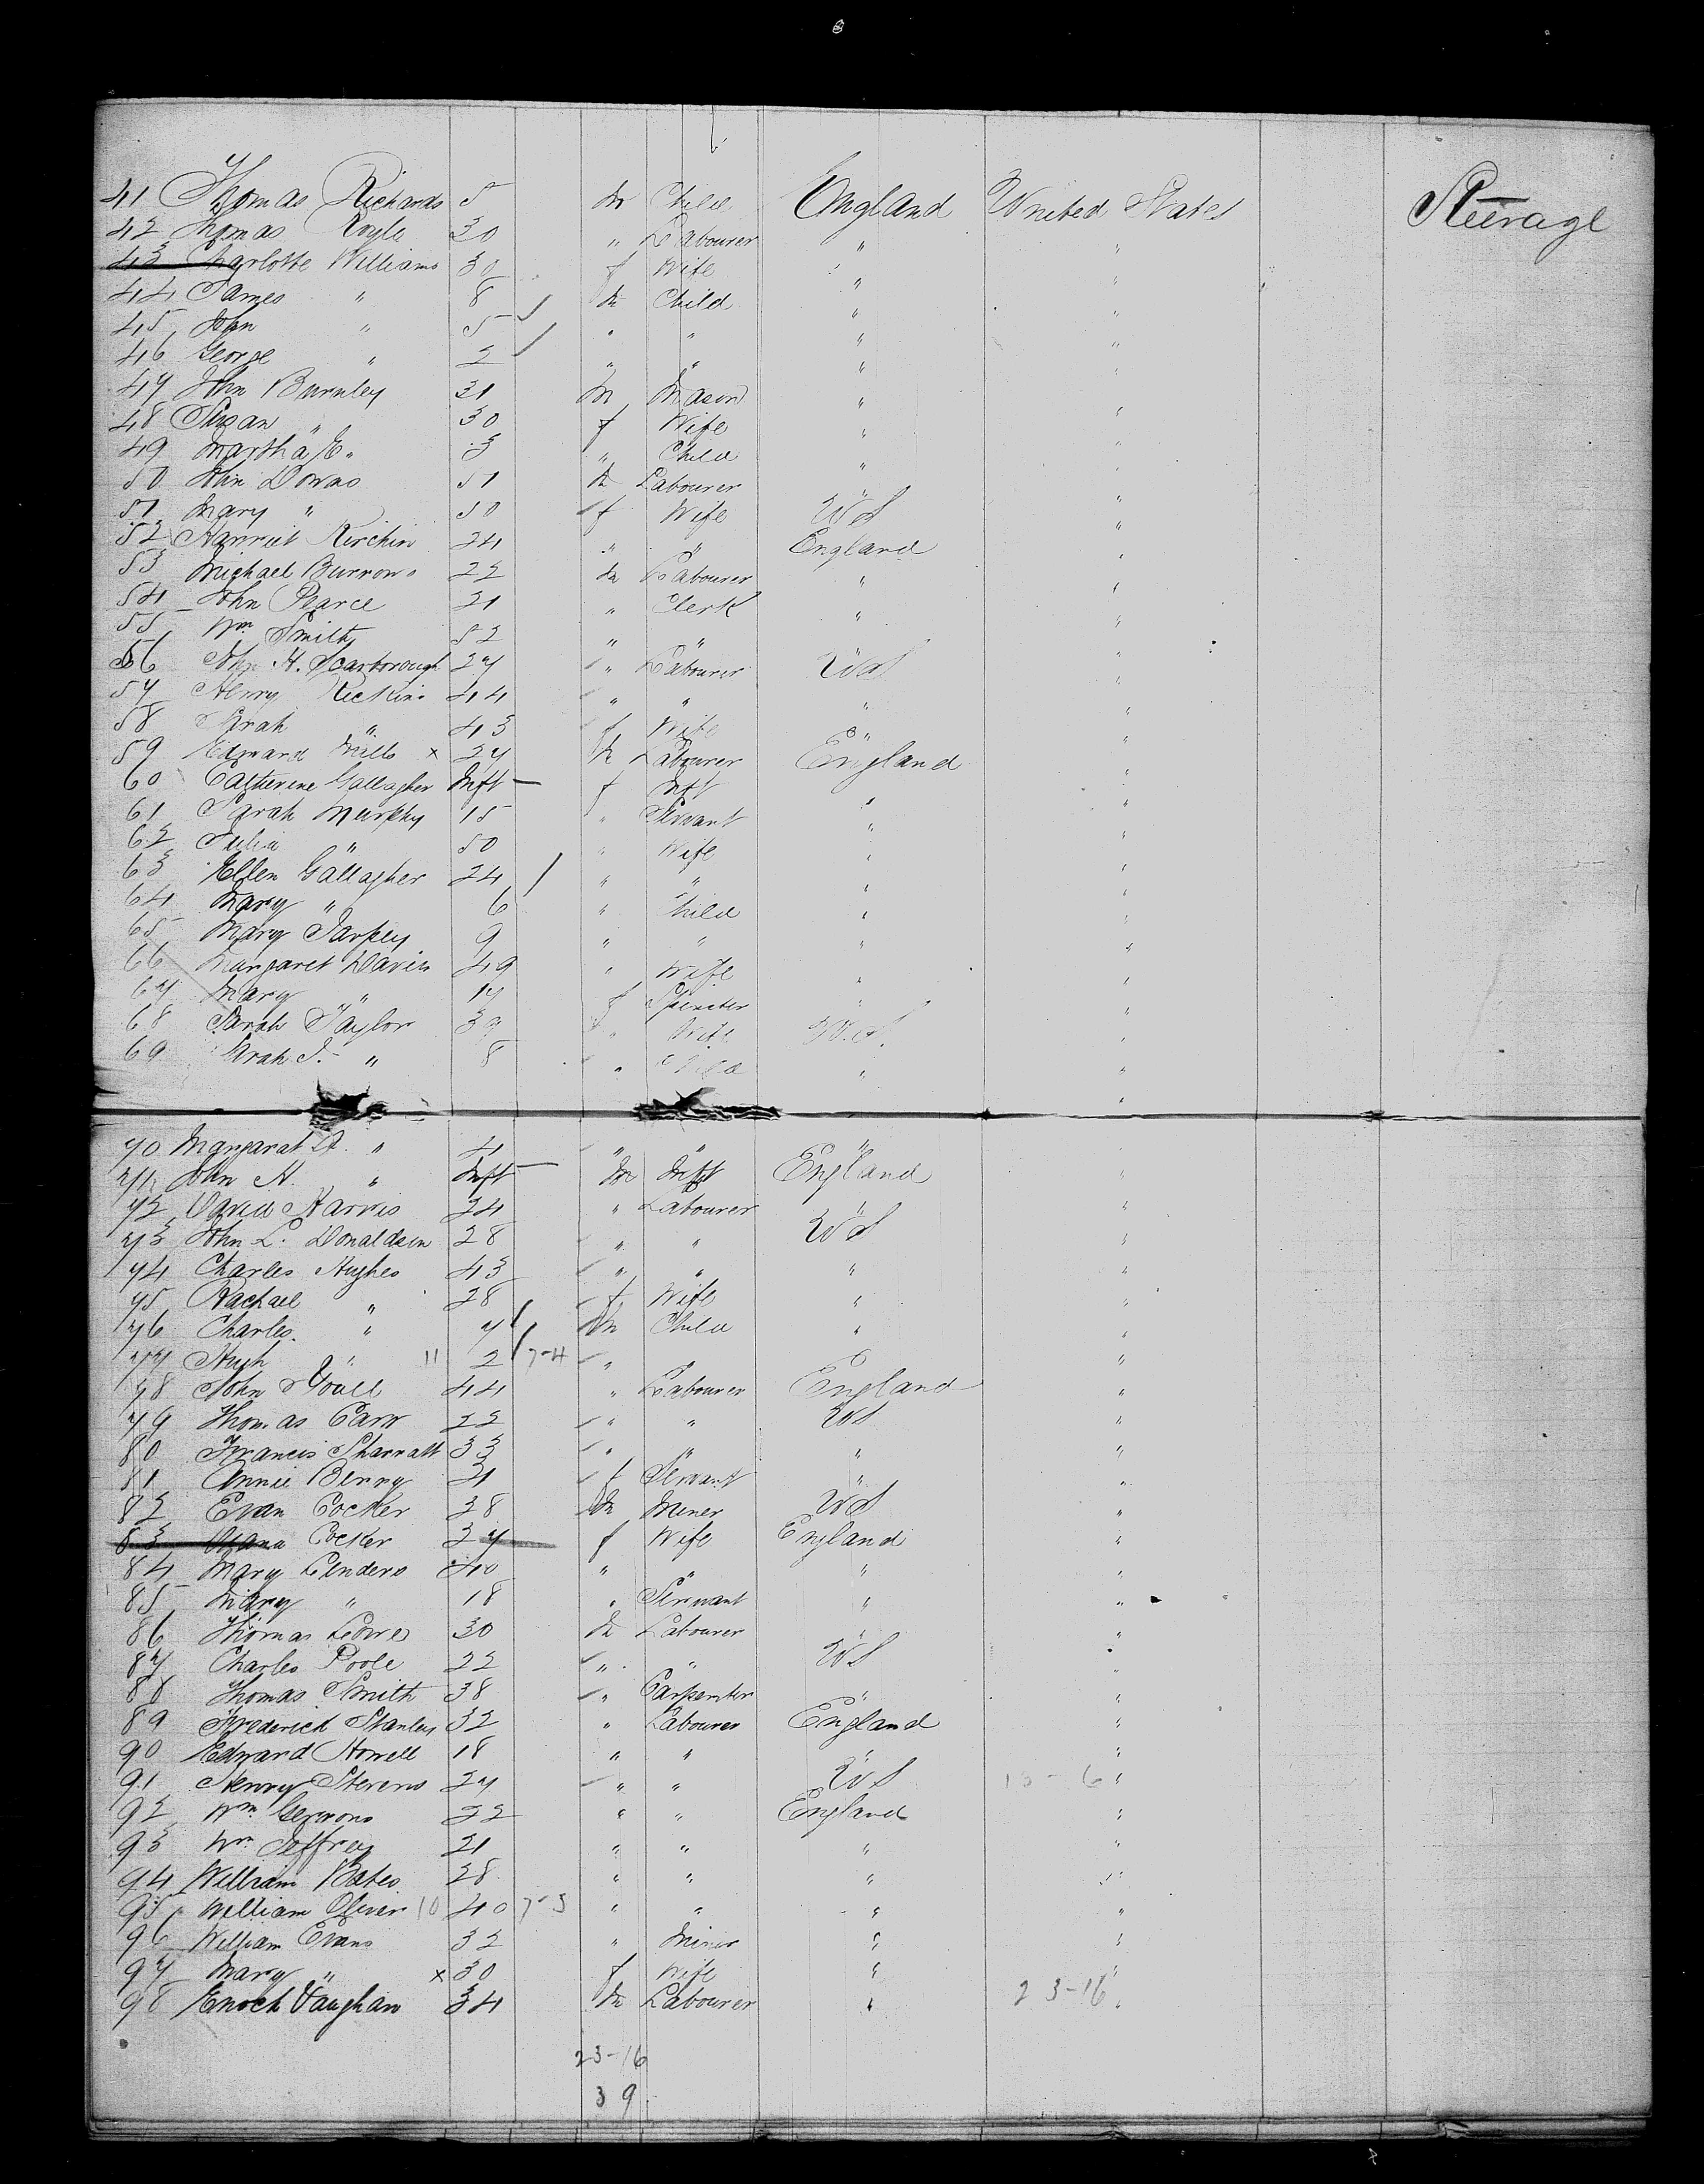 41 Thomas Richards 5 m Child England United States Steerage
42 Thomas Royle 30 " Labourer " "
43 Charlotte Williams 30 f Wife " "
44 James " 8 m Child " "
45 John " 5 " " " "
46 George " 2 " " " "
47 John Burnley 31 m Mason " "
48 Susan " 30 f Wife " "
49 Martha E. " 3 " Child " "
50 John Downs 51 m Labourer " "
51 Mary " 50 f Wife US "
52 Harriet 24 " " England "
53 Michael Burrows 22 m Labourer " "
54 John Pearce 21 " Clerk " "
55 Wm Smith 52 " " " "
56 John H. Scarborough 27 " Labourer US "
57 Henry 44 " " " "
58 Sarah " 43 f Wife " "
59 Edward Mills x 27 m Labourer England "
60 Catherine Gallagher Inft f Inft " "
61 Sarah Murphy 15 " Servant " "
62 Julia " 50 " Wife " "
63 Ellen Gallagher 24 " " " "
64 Mary " 6 " Child " "
65 Mary Tarpey 9 " " " "
66 Margaret Davis 49 " Wife " "
67 Mary " 17 f Spinster " "
68 Sarah Taylor 39 " Wife U.S. "
69 Sarah J. " 8 " Child " "
70 Margarat A. " 4 " " " "
71 John H. " Inft m Inft England "
72 David Harris 24 " Labourer " "
73 John L. Donaldson 28 " " US "
74 Charles Hughes 43 " " " "
75 Rachael " 28 f Wife " "
76 Charles " 7 m Child " "
77 Hugh " 11 2 7-4 " "
78 John 44 " Labourer England "
79 Thomas Carr 22 " " US "
80 Francis Sharratt 33 " " " "
81 Annie Berry 21 f Servant " "
82 Evan Cocker 28 m Miner US "
83 Cocker 27 f Wife England "
84 Mary Lenders 40 " " " "
85 Mary " 18 " Servant " "
86 Thomas Lowe 30 m Labourer " "
87 Charles Poole 22 " " US "
88 Thomas Smith 38 " Carpenter " "
89 Frederick Stanley 32 " Labourer England "
90 Edward Howell 18 " " " "
91 Henry Stevens 27 " " US 13-6 "
92 Wm 22 " " England "
93 Wm Jeffrey 21 " " " "
94 William Bates 28 " " " "
95 William Oliver 10 40 7-5 " " " "
96 William Evans 32 " Miner " "
97 Mary " x 30 f Wife " "
98 Enoch Vaughan 34 m Labourer " 23-16 "
23-16
39